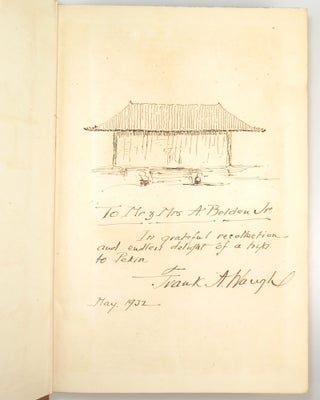 To Mr & Mrs A Bolden Jr
In grateful recollection
and endless delight of a trip
to Pekin
Frank A. Waugh
May, 1932